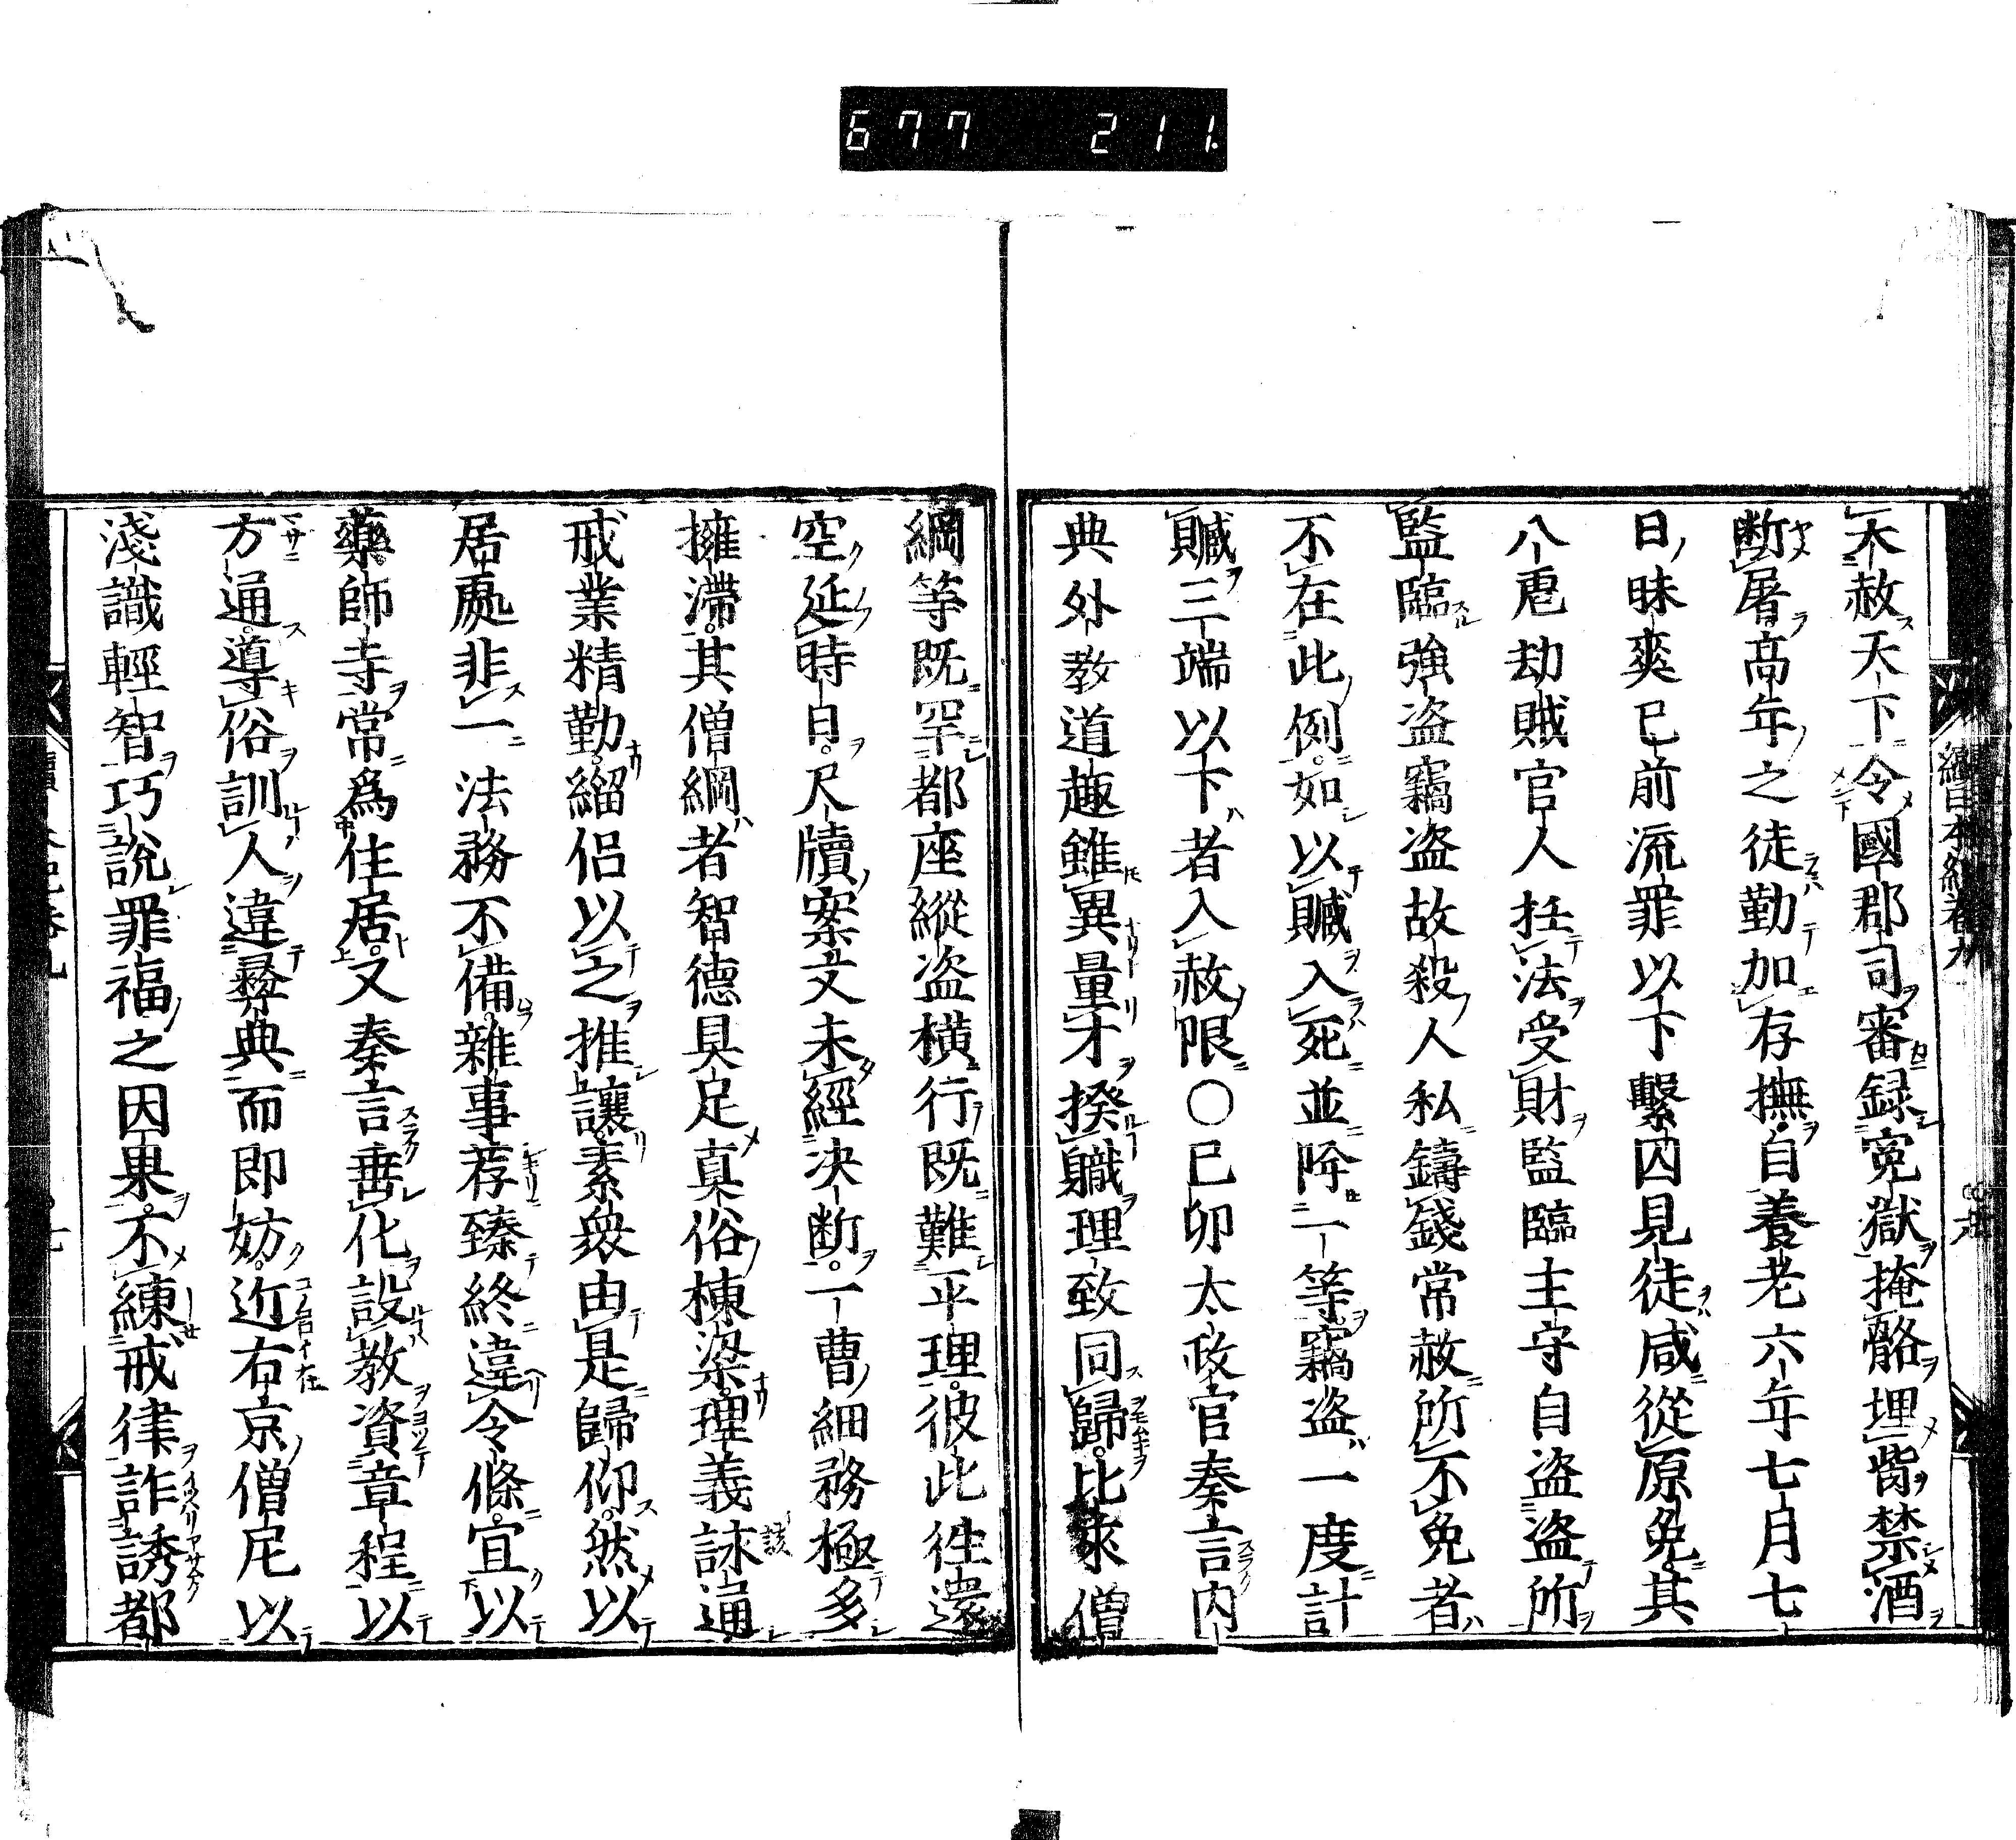 677 211
大赦天下令國郡司審録寃獄掩骼埋胔禁酒
断屠高年之徒勤加存撫自養老六年七月七
日昧爽已前流罪以下繋囚見徒咸從原免其
八虐劫賊官人抂法受財監臨主守自盗盗所
監臨強盗竊盗故殺人私鑄錢常赦所不免者
不在此例如以贓入死並降一等竊盗一度計
贓三端以下者入赦限〇己卯太政官奏言内
典外教道趣雖異量才揆職理致同歸比來僧
綱等既罕都座縱盗横行既難平理彼此徃還
空延時日尺牘案文未經决断一曹細務極多
擁滯其僧綱者智德具足真俗棟梁理義詠通
戒業精勤緇侶以之推讓素衆由是歸仰然以
居處非一法務不備雜事荐臻終違令條宜以
藥師寺常爲住居又奏言垂化設教資章程以
方通導俗訓人違彝典而即妨近右京僧尼以
淺識輕智巧說罪福之因果不練戒律詐誘都